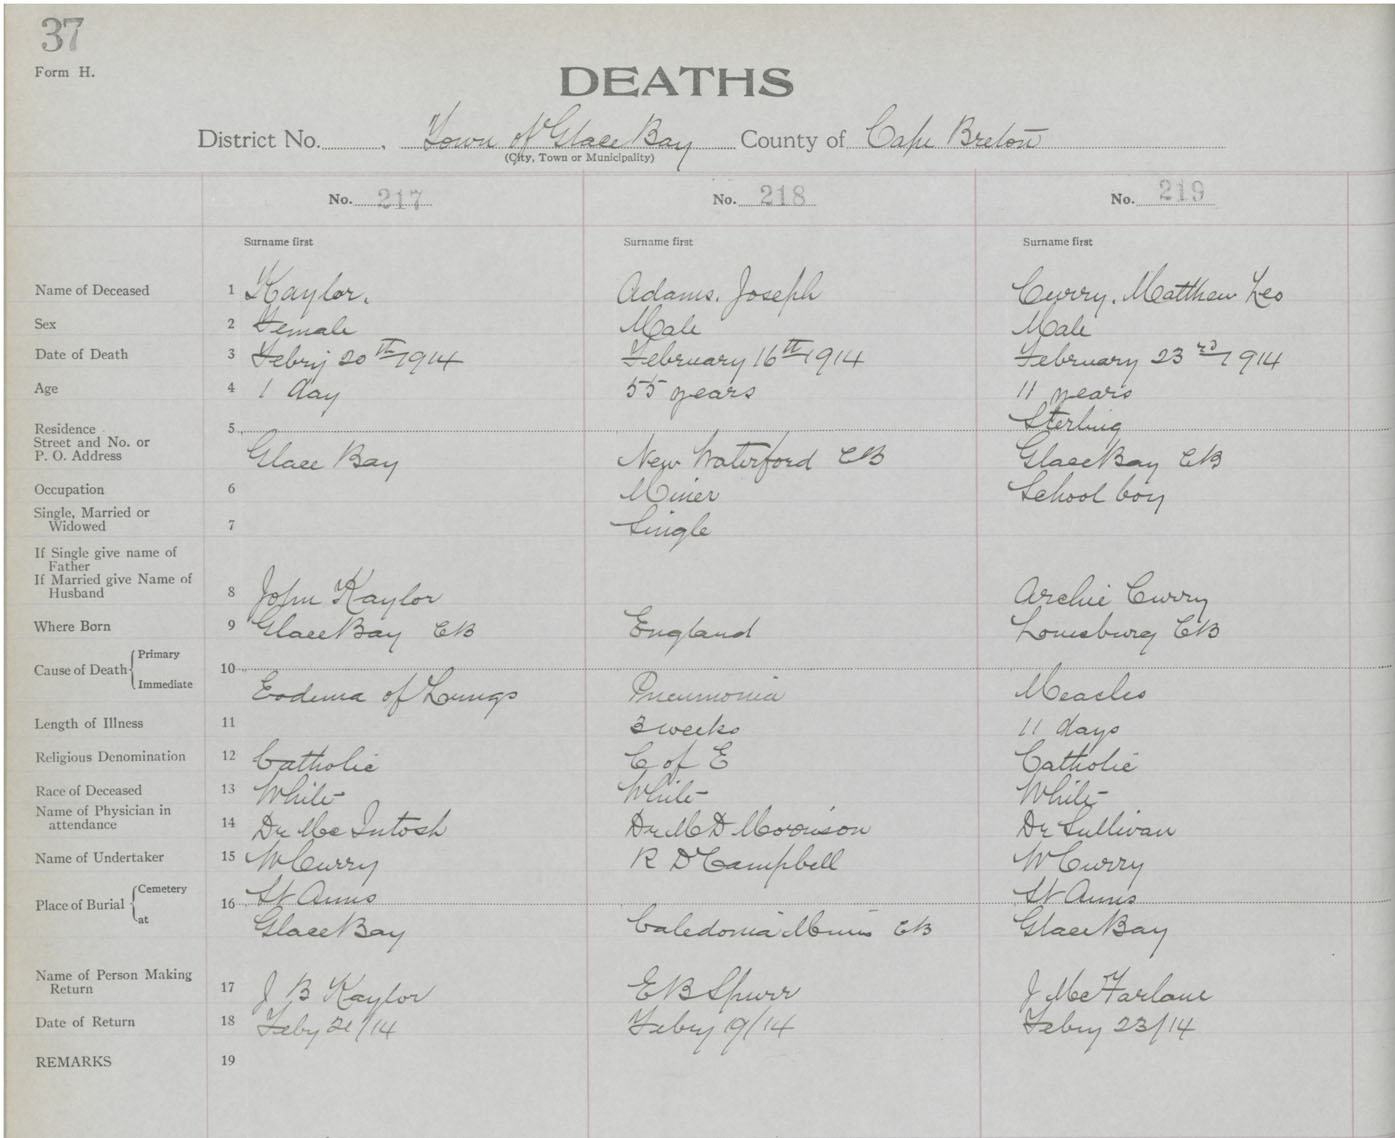 37
Form H.
DEATHS
District No. , Town of Glace Bay County of Cape Breton
(City, Town or Municipality)
No. 217 No. 218 No. 219
Surname first Surname first Surname first
Name of Deceased 1 Kaylor. Adams. Joseph Curry. Matthew Leo
Sex 2 Female Male Male
Date of Death 3 Febry 20th 1914 February 16th 1914 February 23rd 1914
Age 4 1 day 55 years 11 years
Residence 5 Sterling
Street and No. or
P. O. Address Glace Bay New Waterford CB Glace Bay CB
Occupation 6 Miner School boy
Single, Married or
Widowed 7 Single
If Single give name of
Father
If Married give Name of
Husband 8 John Kaylor Archie Curry
Where Born 9 Glace Bay CB England Louisburg CB
Cause of Death Primary 10
Immediate Eodema of Lungs Pneumonia Measles
Length of Illness 11 3 weeks 11 days
Religious Denomination 12 Catholic C of E Catholic
Race of Deceased 13 White White White
Name of Physician in
attendance 14 Dr McIntosh Dr M D Morrison Dr Sullivan
Name of Undertaker 15 W Curry R D Campbell W Curry
Place of Burial Cemetery 16 St Anns St Anns
at Glace Bay Caledonia Mines CB Glace Bay
Name of Person Making
Return 17 J B Kaylor E B Spurr J McFarlane
Date of Return 18 Feby 21/14 Febry 19/14 Febry 23/14
REMARKS 19